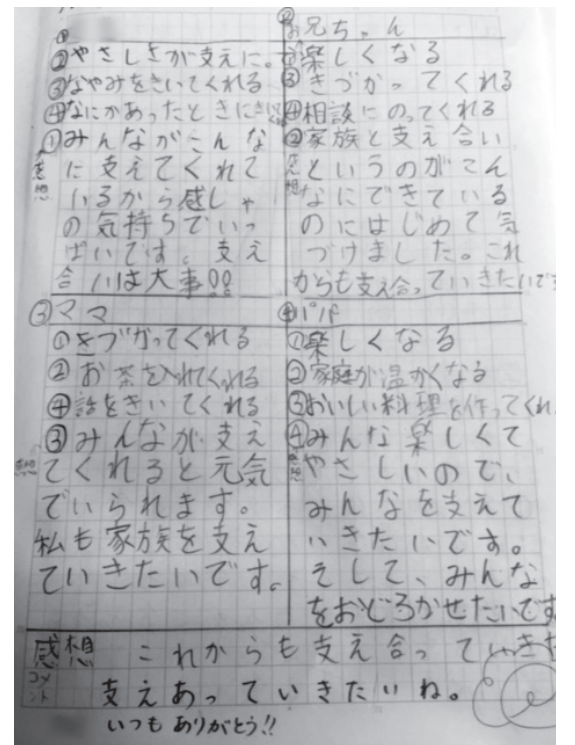 ①
②やさしさが支えに。
③なやみをきいてくれる
④なにかあったときにきいてくれる
①みんながこんな
感想
に支えてくれて
いるから感しゃ
の気持ちでいっ
ぱいです。支え
合いは大事!!
②お兄ちゃん
①楽しくなる
③きづかってくれる
④相談にのってくれる
②家族と支え合い
感想
というのがこん
なにできている
のにはじめて気
づけました。これ
からも支え合っていきたいです
③ママ
①きづかってくれる
②お茶を入れてくれる
④話をきいてくれる
③みんなが支え
感想
てくれると元気
でいられます。
私も家族を支え
ていきたいです。
④パパ
①楽しくなる
②家庭が温かくなる
③おいしい料理を作ってくれ
④みんな楽しくて
感想
やさしいので、
みんなを支えて
いきたいです。
そして、みんな
をおどろかせたいです
感想 これからも支え合っていきた
コメント
支えあっていきたいね。
いつもありがとう!!